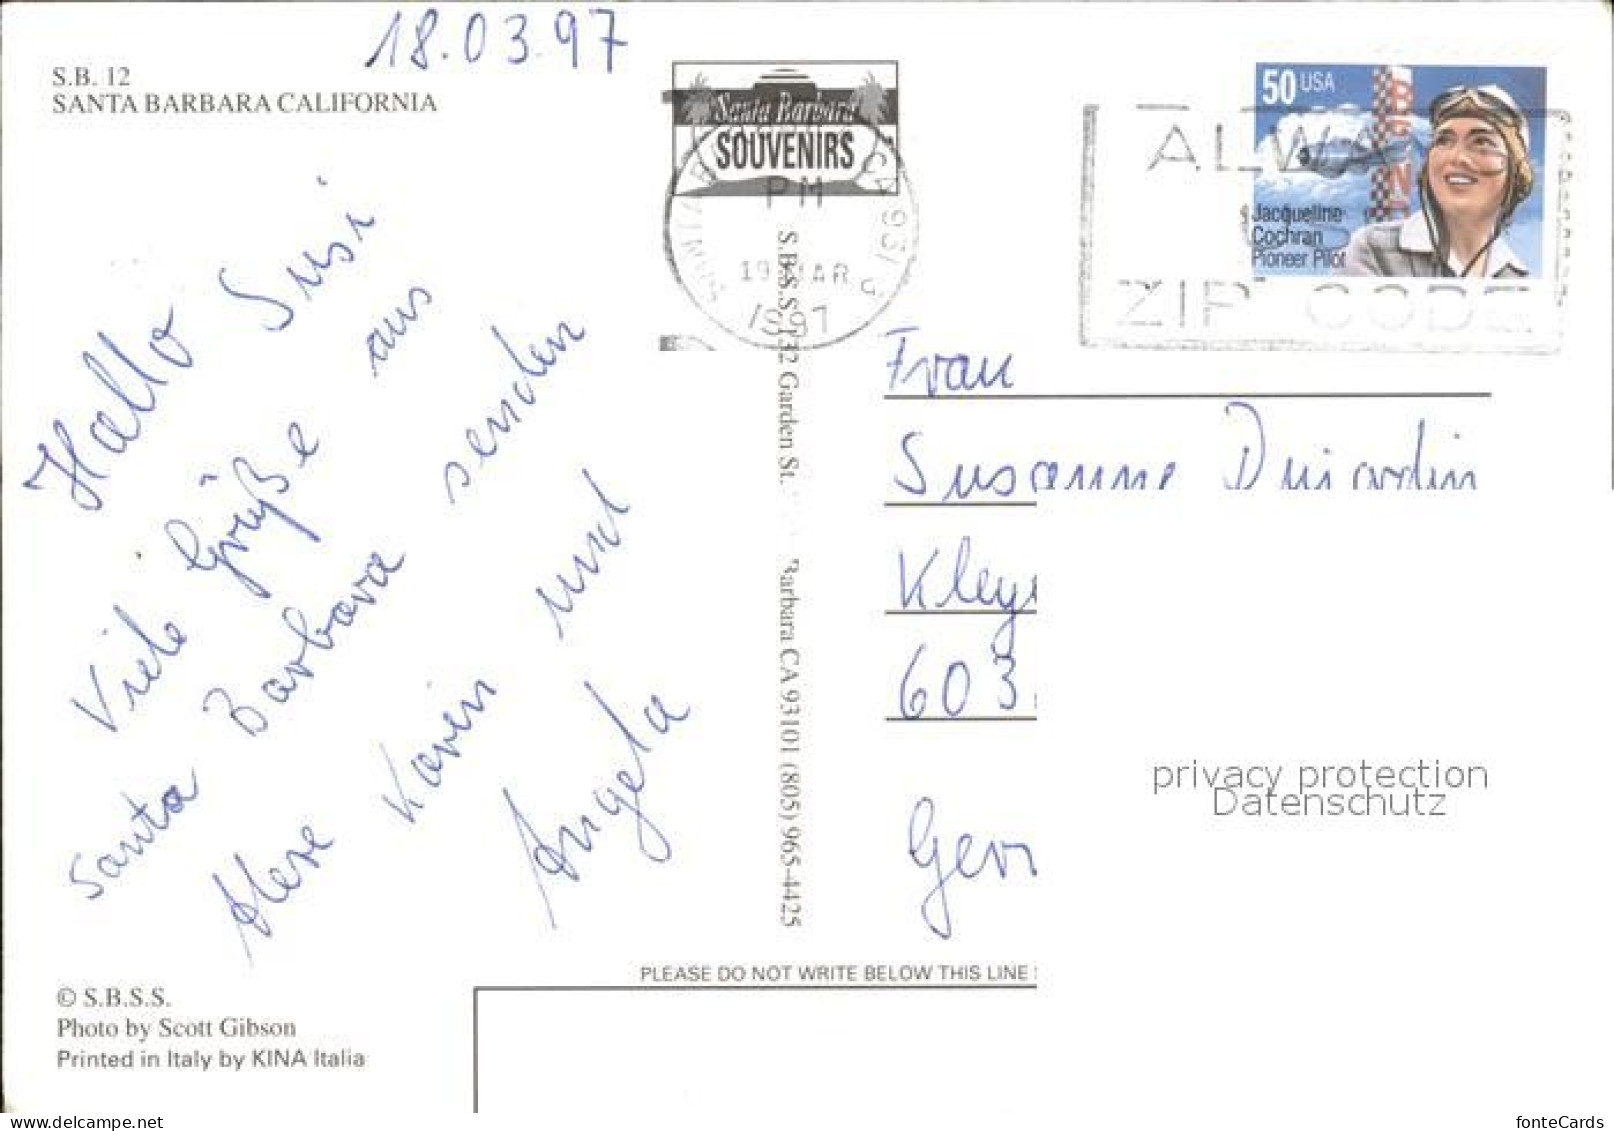 18.03.97
S.B. 12
SANTA BARBARA CALIFORNIA
Hallo Susi
Viele Grüße aus
Santa Barbara senden
Karin und
Angela
© S.B.S.S.
Photo by Scott Gibson
Printed in Italy by KINA Italia
Santa Barbara
SOUVENIRS
PM
19 MAR
1997
CA 931
S.B.S.S. 132 Garden St.
Barbara CA 93101 (805) 965-4425
50 USA
Jacqueline
Cochran
Pioneer Pilot
ALWA
ZIP CODE
Frau
Susanne Dujardin
Kley
603
Ger
privacy protection
Datenschutz
PLEASE DO NOT WRITE BELOW THIS LINE
www.delcampe.net
fonteCards